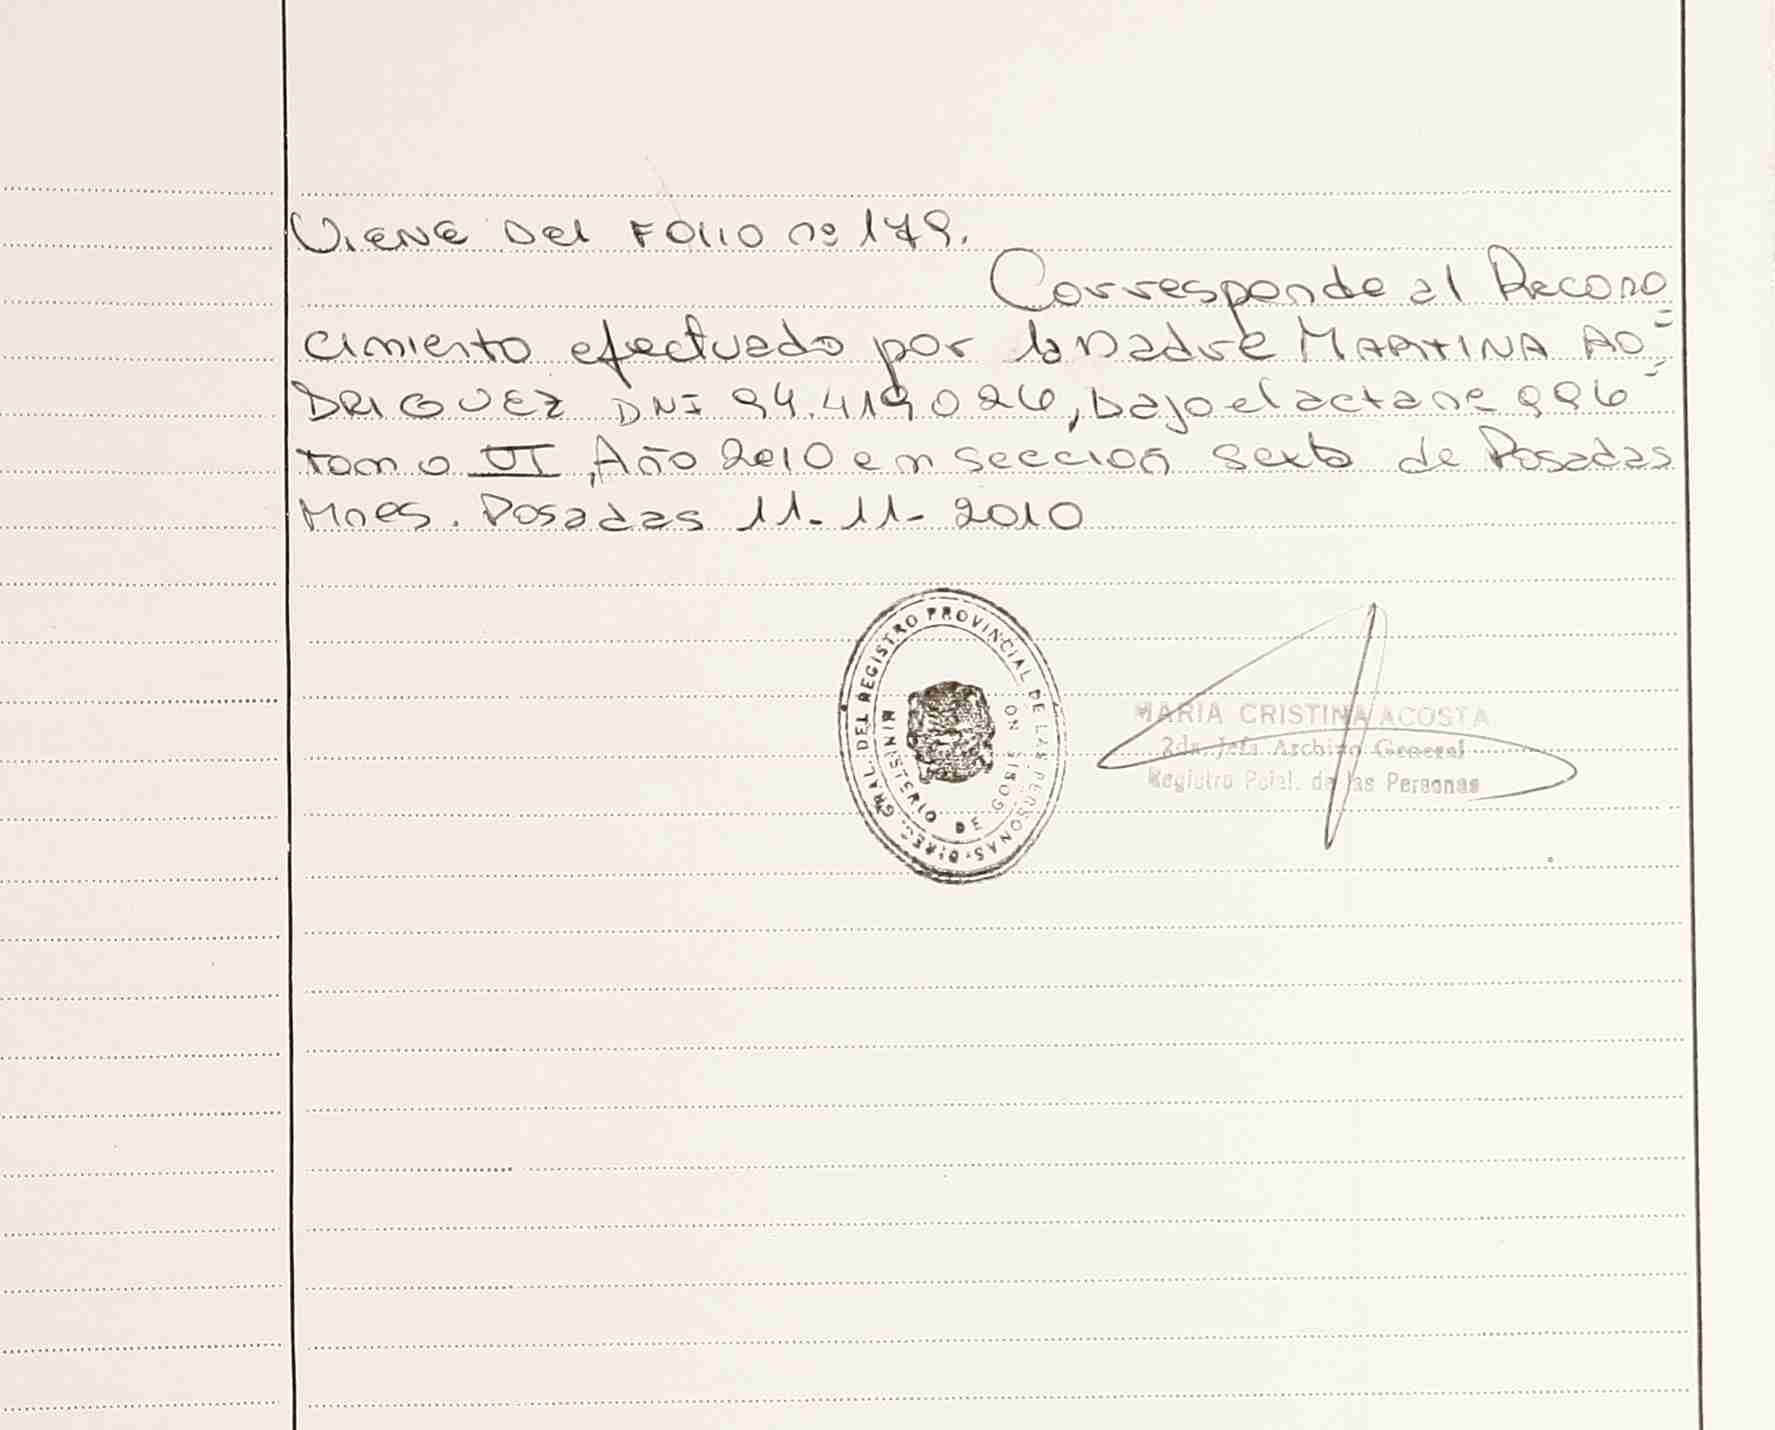 Viene Del Folio nº 179.
Corresponde al Recono
cimiento efectuado por la Madre MARTINA RO=
DRIGUEZ DNI 94.419.026, bajo el acta nº 996
tomo VI, Año 2010 en seccion sexta de Posadas
Mnes. Posadas 11-11-2010
DIREC. GRAL. DEL REGISTRO PROVINCIAL DE LAS PERSONAS
MINISTERIO DE GOBIERNO
MARIA CRISTINA ACOSTA
2da. Jefa Archivo General
Registro Pcial. de las Personas